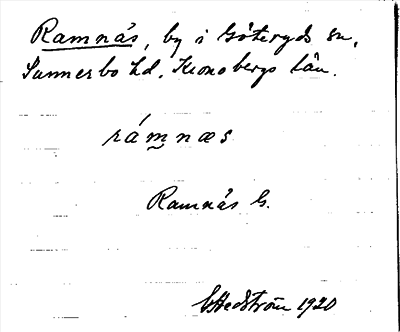 Ramnås, by i Göteryds sn,
Sunnerbo hd, Kronobergs län.
rám̰næs
Ramnås G.
G Hedström 1920